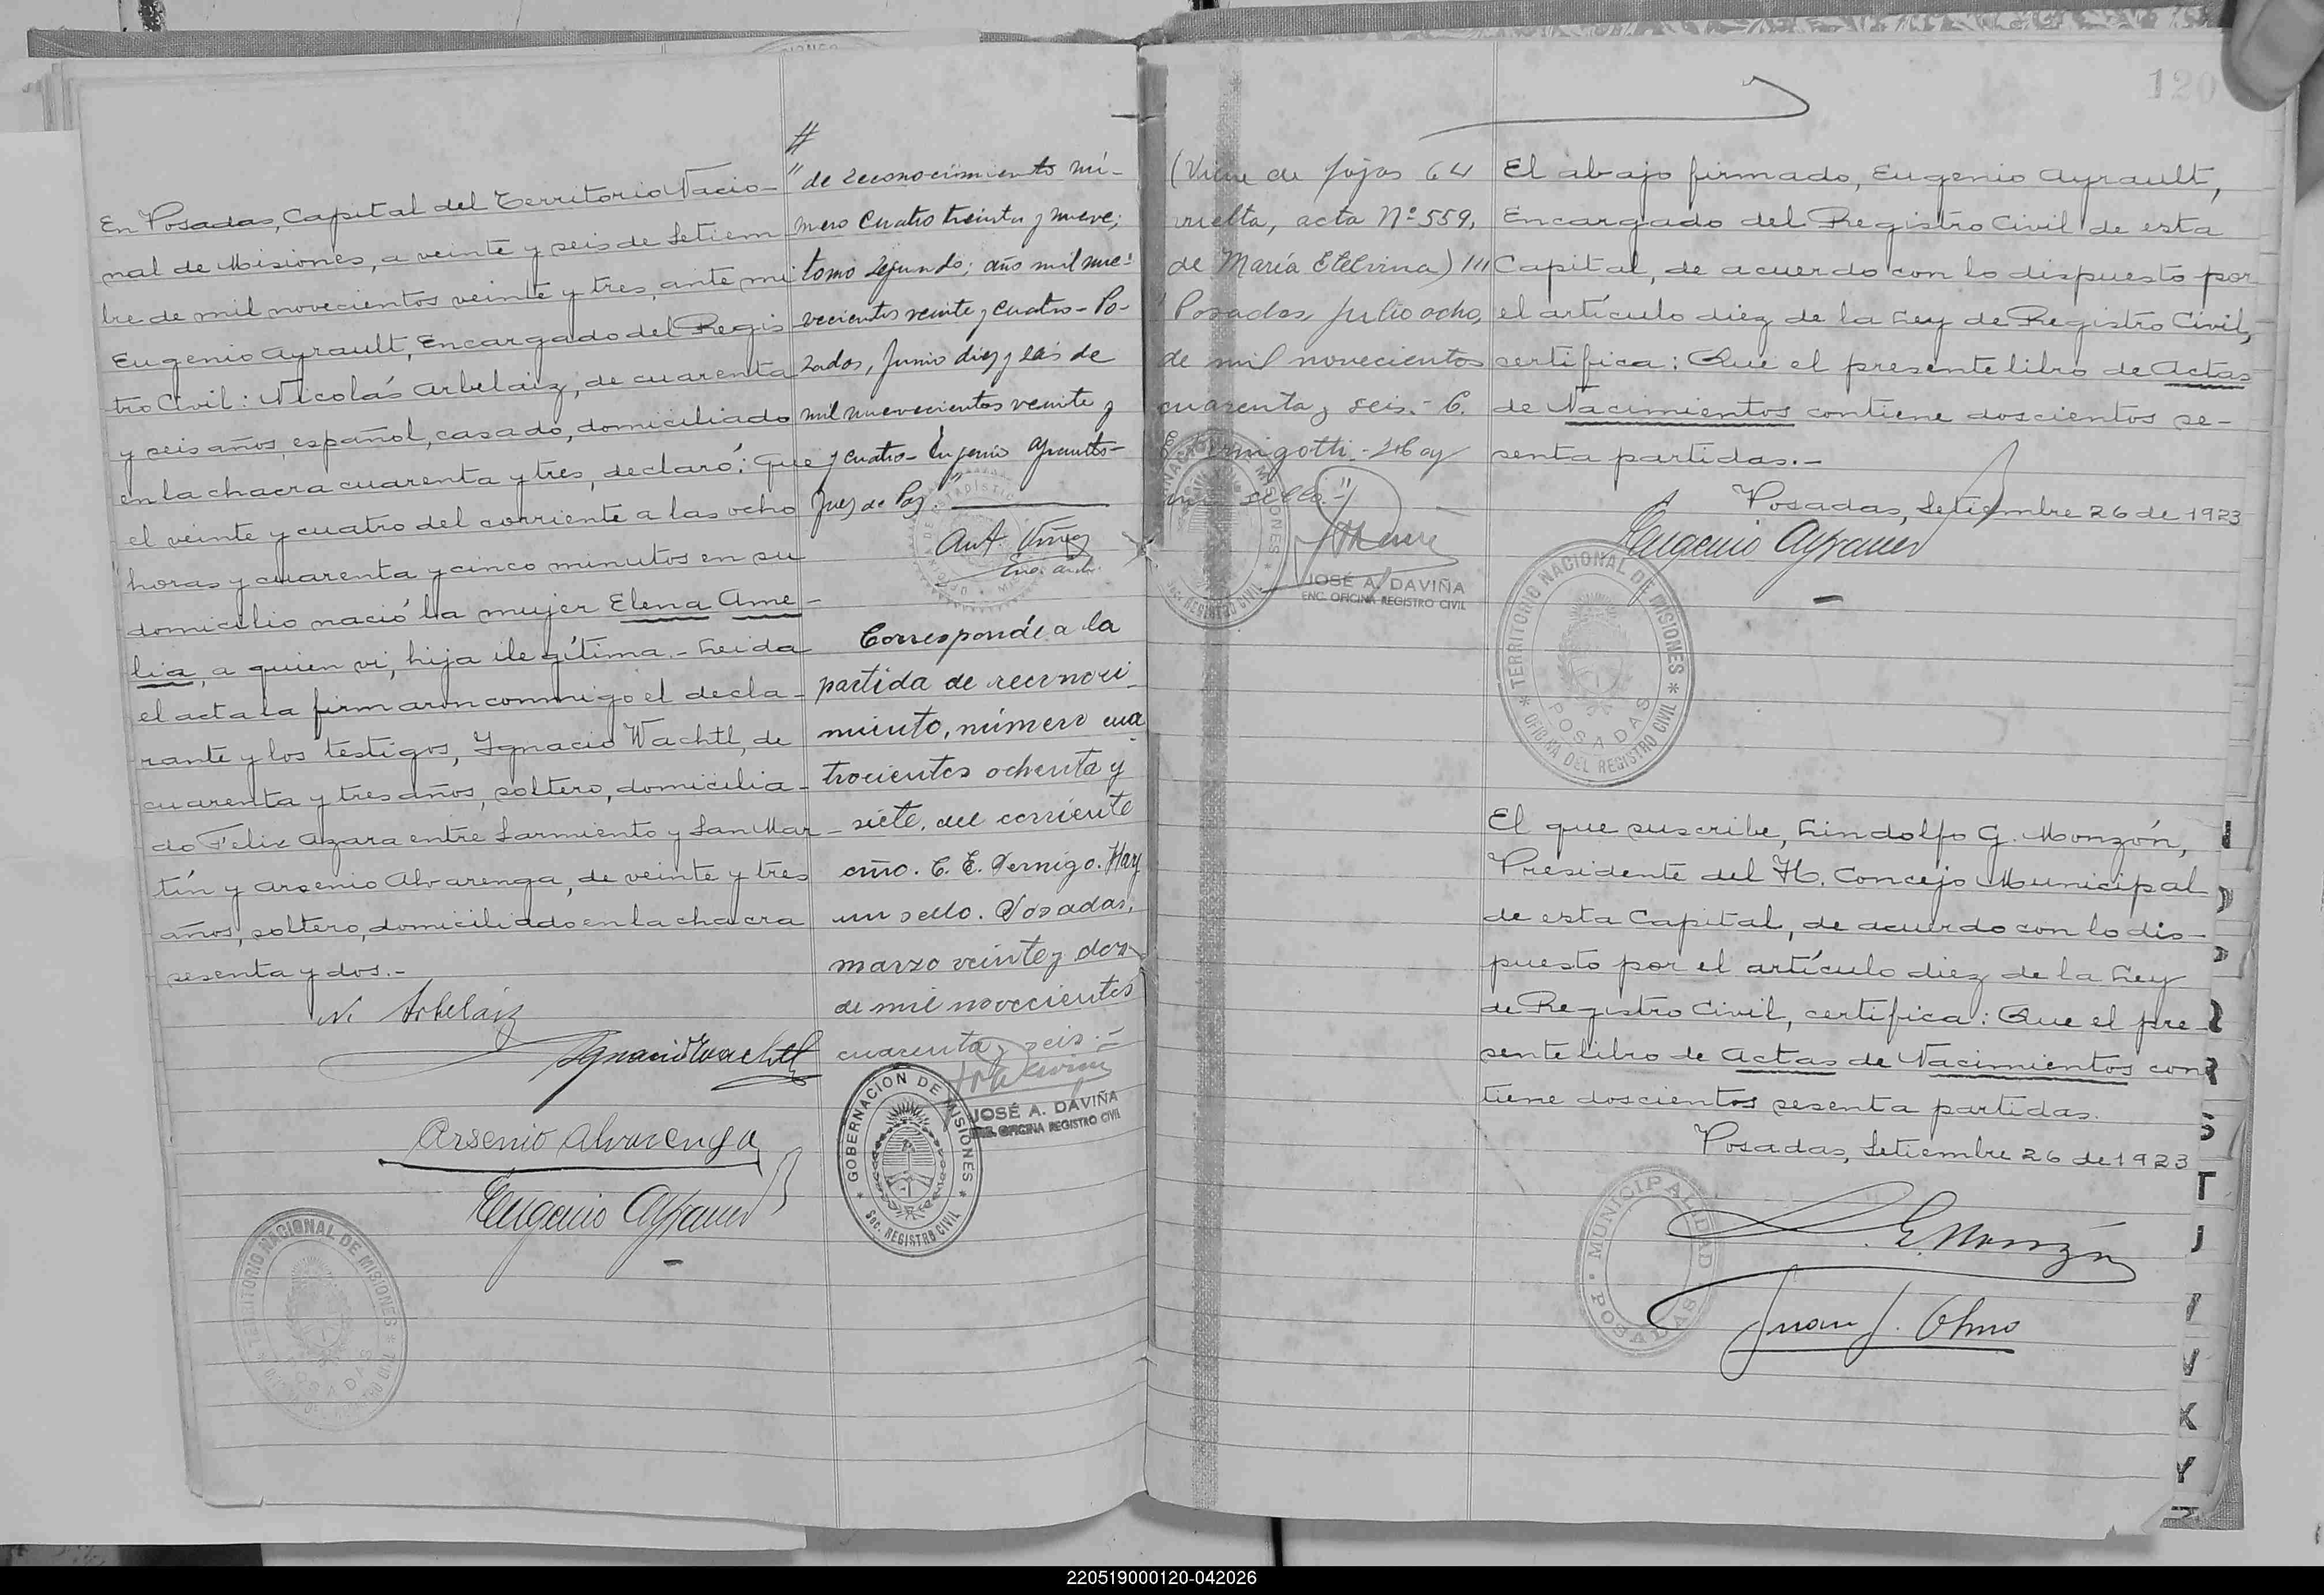 En Posadas, Capital del Territorio Nacio-
nal de Misiones, a veinte y seis de Setiem
bre de mil novecientos veinte y tres, ante mi
Eugenio Ayrault, Encargado del Regis
tro Civil: Nicolás Arbelaiz, de cuarenta
y seis años, español, casado, domiciliado
en la chacra cuarenta y tres, declaró: Que
el veinte y cuatro del corriente a las ocho
horas y cuarenta y cinco minutos en su
domicilio nació la mujer Elena Ame-
lia, a quien vi, hija ilegítima.- Leida
el acta la firmaron conmigo el decla-
rante y los testigos, Ygnacio Wachtl, de
cuarenta y tres años, soltero, domicilia-
do Felix Azara entre Sarmiento y San Mar-
tín y Arsenio Alvarenga, de veinte y tres
años, soltero, domiciliado en la chacra
sesenta y dos.-
N. Arbelaiz
Ignacio Wachtl
Arsenio Alvarenga
Eugenio Ayrault
TERRITORIO NACIONAL DE MISIONES
POSADAS
#
"de reconocimiento nú-
mero cuatro treinta y nueve;
tomo segundo; año mil nue-
vecientos veinte y cuatro- Po-
sadas, Junio diez y seis de
mil nuevecientos veinte y
y cuatro- Eugenio Ayrault-
Juez de Paz"
Corresponde a la
partida de reconoci-
miento, número cua
trocientos ochenta y
siete, del corriente
año. C. E. Pernigo. Hay
un sello. Posadas,
marzo veinte y dos
de mil novecientos
cuarenta y seis.-
JOSÉ A. DAVIÑA
ENC. OFICINA REGISTRO CIVIL
GOBERNACION DE MISIONES
Sec. REGISTRO CIVIL
120
(Viene de fojas 64
vuelta, acta Nº 559,
de María Etelvina) ///
"Posadas, julio ocho,
de mil novecientos
cuarenta y seis.- C.
E. Pernigotti.- Hay
un sello.-"
JOSÉ A. DAVIÑA
ENC. OFICINA REGISTRO CIVIL
MISIONES
Sec. REGISTRO CIVIL
El abajo firmado, Eugenio Ayrault,
Encargado del Registro Civil de esta
Capital, de acuerdo con lo dispuesto por
el artículo diez de la Ley de Registro Civil,
certifica: Que el presente libro de Actas
de Nacimientos contiene doscientos se-
senta partidas.-
Posadas, Setiembre 26 de 1923
Eugenio Ayrault
TERRITORIO NACIONAL DE MISIONES
POSADAS
OFICINA DEL REGISTRO CIVIL
El que suscribe, Lindolfo G. Monzón,
Presidente del H. Concejo Municipal
de esta Capital, de acuerdo con lo dis-
puesto por el artículo diez de la Ley
de Registro Civil, certifica: Que el pre-
sente libro de Actas de Nacimientos con
tiene doscientos sesenta partidas.
Posadas, Setiembre 26 de 1923
L. G. Monzón
Juan J. Olmo
MUNICIPALIDAD
POSADAS
220519000120-042026